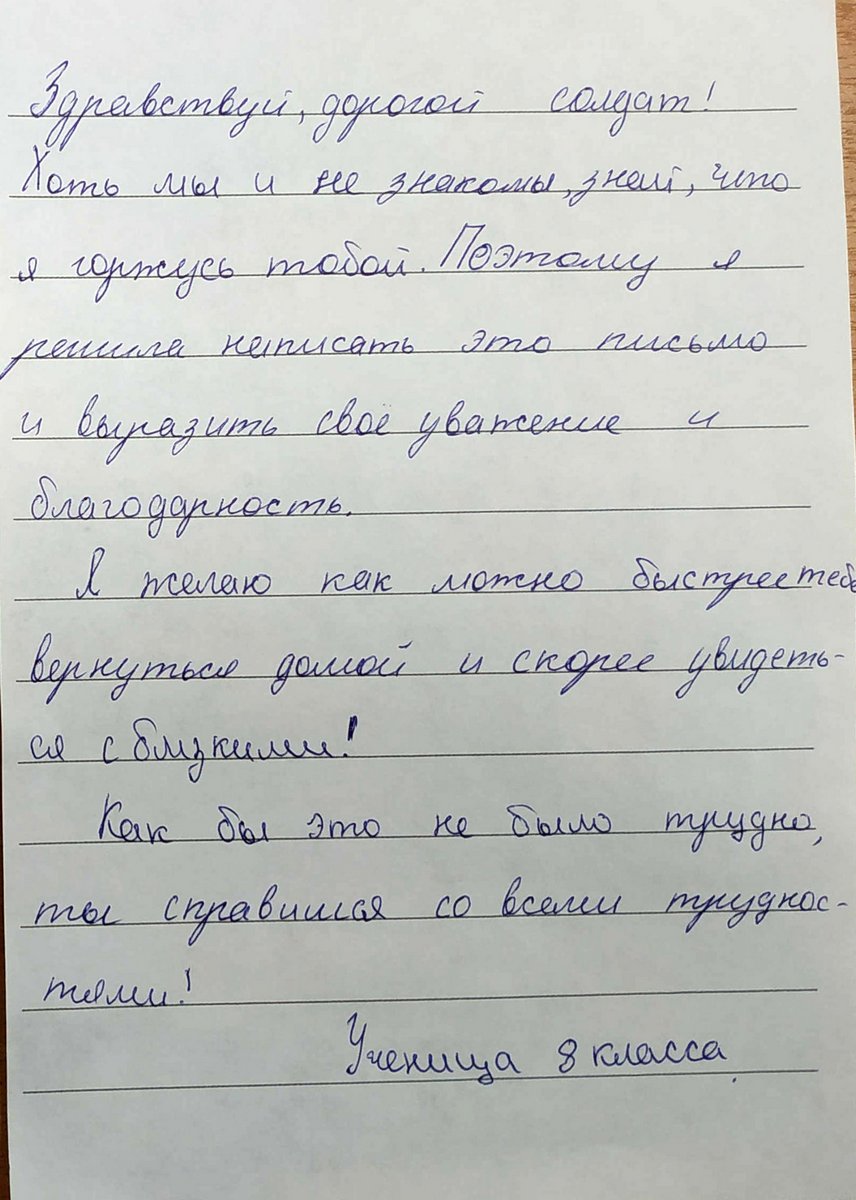 Здравствуй, дорогой солдат!
Хоть мы и не знакомы, знай, что
я горжусь тобой. Поэтому я
решила написать это письмо
и выразить своё уважение и
благодарность.
Я желаю как можно быстрее тебе
вернуться домой и скорее увидеть-
ся с близкими!
Как бы это не было трудно,
ты справишся со всеми труднос-
тями!
Ученица 8 класса.